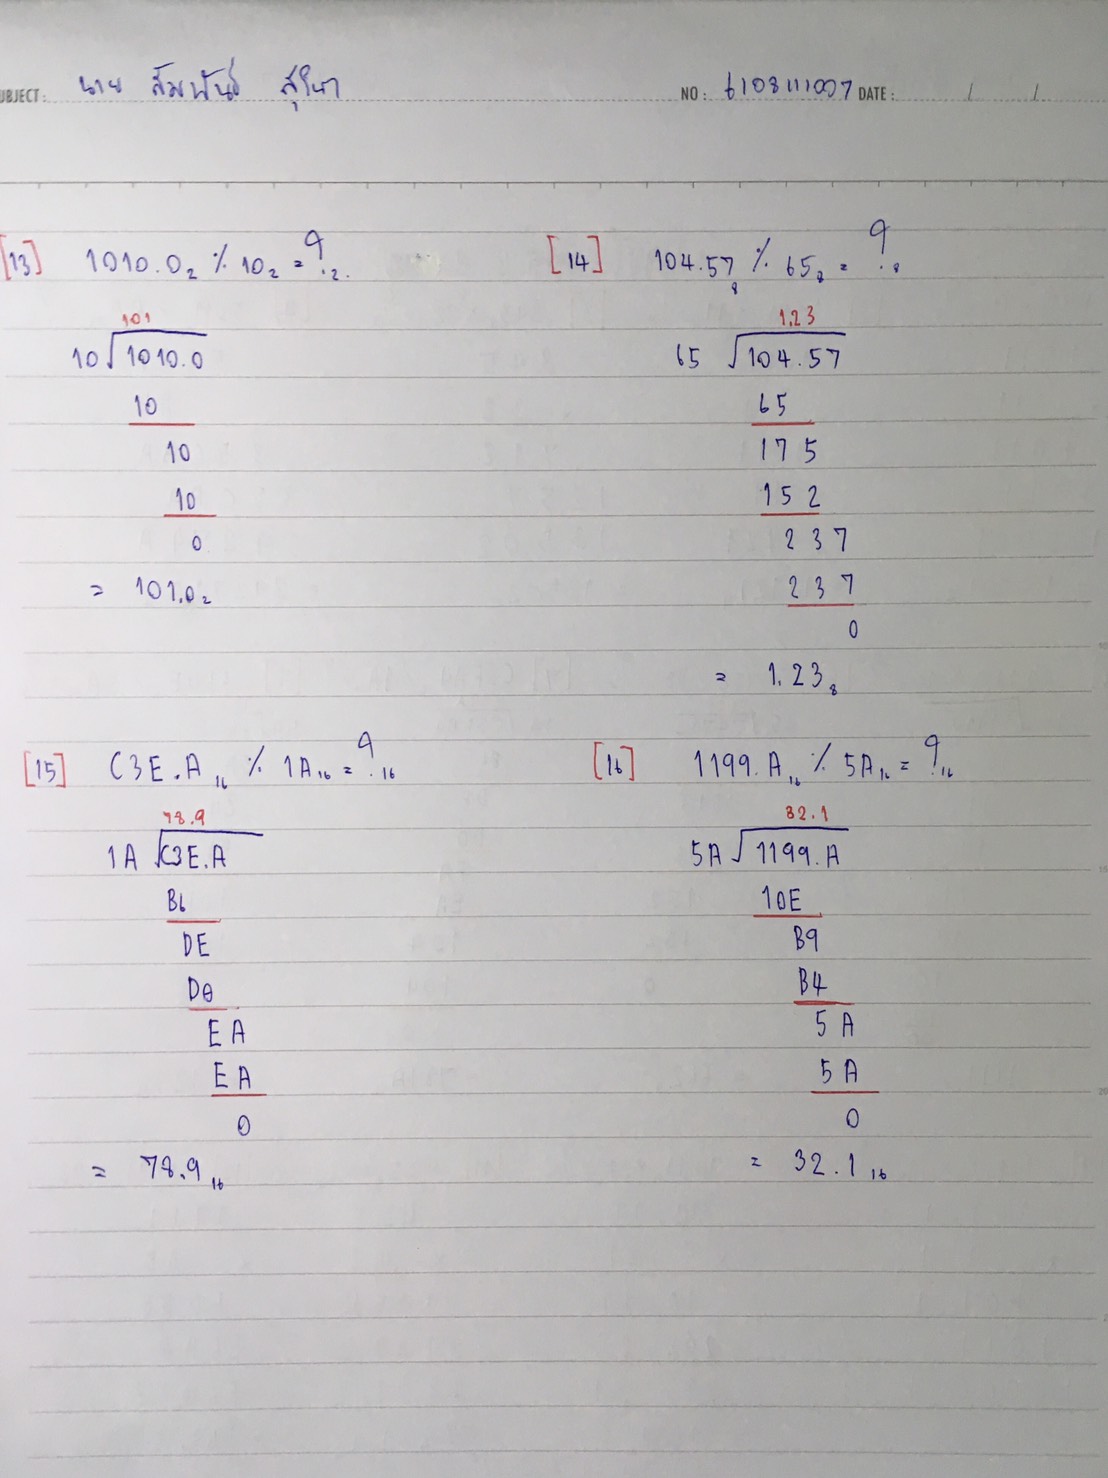 SUBJECT: นาย สัมพันธ์ สุริมา NO: 6103111007 DATE: / /
[13] 1010.0₂ ٪ 10₂ = ?₂
101
10 √1010.0
10
10
10
0
= 101.0₂
[14] 104.57₈ ٪ 65₈ = ?₈
1.23
65 √104.57
65
175
152
237
237
0
= 1.23₈
[15] C3E.A₁₆ ٪ 1A₁₆ = ?₁₆
78.9
1A √C3E.A
B6
DE
D0
EA
EA
0
= 78.9₁₆
[16] 1199.A₁₆ ٪ 5A₁₆ = ?₁₆
32.1
5A √1199.A
10E
B9
B4
5A
5A
0
= 32.1₁₆